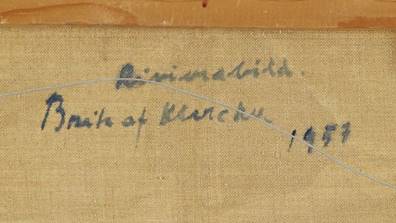 Rivierabild.
Brita af Klercker 1957